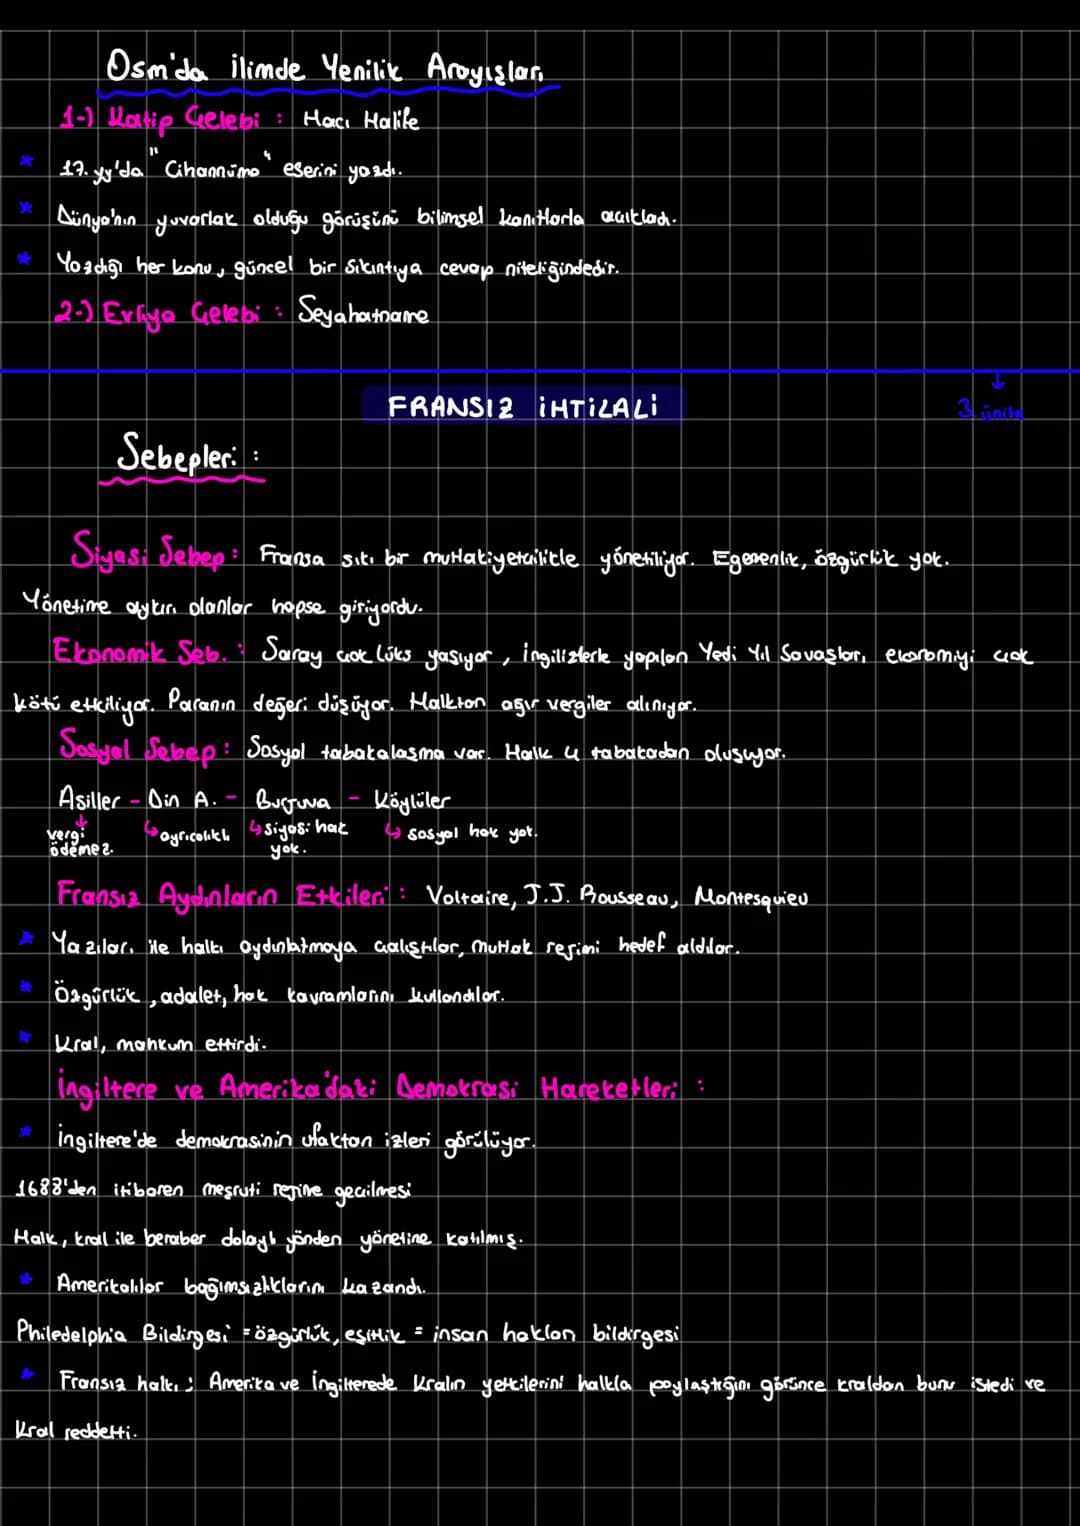 Osm'da ilimde Yenilik Arayışları
1-) Katip Çelebi : Hacı Halife
17. yy'da "Cihannüma" eserini yazdı.
Dünya'nın yuvarlak olduğu görüşünü bilimsel kanıtlarla açıkladı.
Yazdığı her konu, güncel bir sıkıntıya cevap niteliğindedir.
2-) Evliya Çelebi : Seyahatname
FRANSIZ İHTİLALİ
3. ünite
Sebepleri :
Siyasi Sebep : Fransa sıkı bir mutlakiyetçilikle yönetiliyor. Egemenlik, özgürlük yok.
Yönetime aykırı olanlar hapse giriyordu.
Ekonomik Seb. : Saray çok lüks yaşıyor, İngilizlerle yapılan Yedi Yıl Savaşları, ekonomiyi çok
kötü etkiliyor. Paranın değeri düşüyor. Halktan ağır vergiler alınıyor.
Sosyal Sebep : Sosyal tabakalaşma var. Halk 4 tabakadan oluşuyor.
Asiller - Din A. - Burjuva - Köylüler
vergi ödemez. ayrıcalıklı siyasi hak yok. sosyal hak yok.
Fransız Aydınların Etkileri : Voltaire, J.J. Rousseau, Montesquieu
Yazıları ile halkı aydınlatmaya çalıştılar, mutlak rejimi hedef aldılar.
Özgürlük, adalet, hak kavramlarını kullandılar.
Kral, mahkum ettirdi.
İngiltere ve Amerika'daki Demokrasi Hareketleri :
İngiltere'de demokrasinin ufaktan izleri görülüyor.
1688'den itibaren meşruti rejime geçilmesi
Halk, kral ile beraber dolaylı yönden yönetime katılmış.
Amerikalılar bağımsızlıklarını kazandı.
Philedelphia Bildirgesi = özgürlük, eşitlik = insan hakları bildirgesi
Fransız halkı; Amerika ve İngilterede Kralın yetkilerini halkla paylaştığını görünce kraldan bunu istedi ve
Kral reddetti.